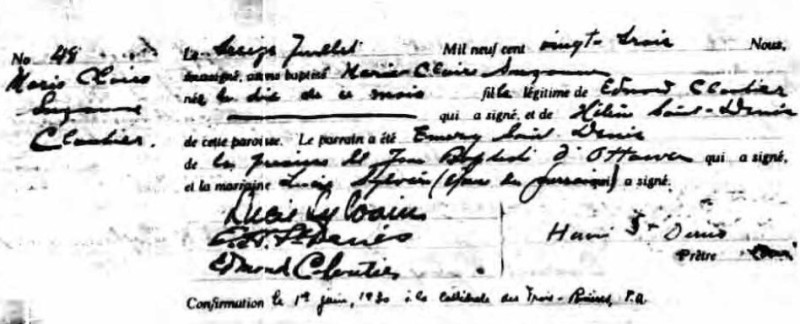 No 48
Marie Claire
Suzanne
Cloutier.
Le treize Juillet Mil neuf cent vingt-trois Nous,
soussigné, avons baptisé Marie-Claire Suzanne
née le dix de ce mois fille légitime de Edmond Cloutier
qui a signé, et de Hélène Saint-Denis
de cette paroisse. Le parrain a été Emery Saint Denis
de la paroisse St Jean Baptiste d'Ottawa qui a signé,
et la marraine Lucie Sylvain (épouse du parrain) a signé.
Lucie Sylvain
St Denis
Edmond Cloutier
Henri St Denis
Prêtre
Confirmation le 1er juin, 1930 à la cathédrale des Trois-Rivières, P.Q.